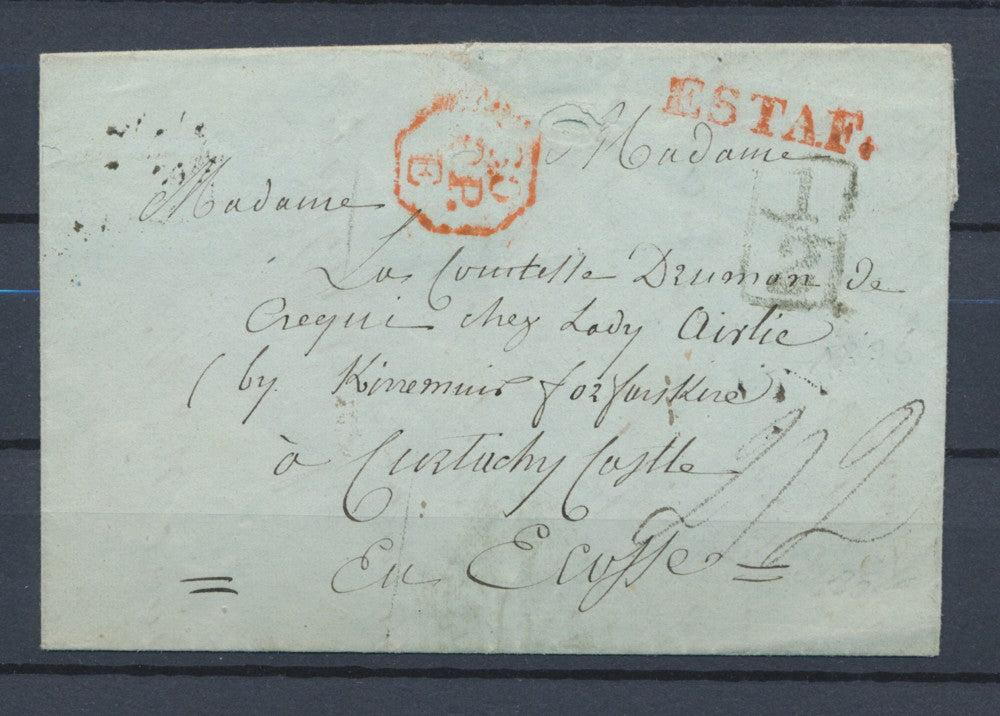 ESTAF.
Madame
Madame
La Comtesse Druman de
Crequi chez Lady Airlie
(by Kirremuir forfarskire
à Curtachy Castle
En Ecosse